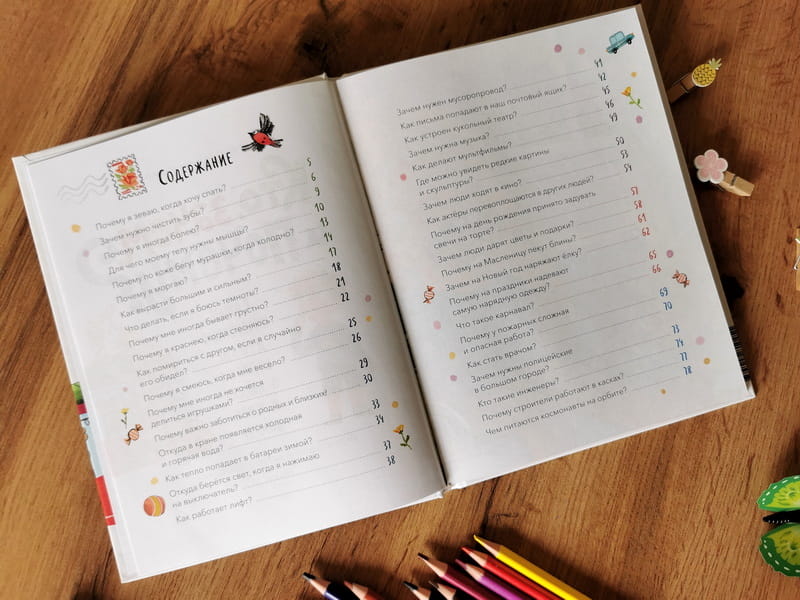 Содержание
Почему я зеваю, когда хочу спать? 5
Зачем нужно чистить зубы? 6
Почему я иногда болею? 9
Для чего моему телу нужны мышцы? 10
Почему по коже бегут мурашки, когда холодно? 13
Почему я моргаю? 14
Как вырасти большим и сильным? 17
Что делать, если я боюсь темноты? 18
Почему мне иногда бывает грустно? 21
Почему я краснею, когда стесняюсь? 22
Как помириться с другом, если я случайно
его обидел? 25
Почему я смеюсь, когда мне весело? 26
Почему мне иногда не хочется
делиться игрушками? 29
Почему важно заботиться о родных и близких? 30
Откуда в кране появляется холодная
и горячая вода? 33
Как тепло попадает в батареи зимой? 34
Откуда берётся свет, когда я нажимаю
на выключатель? 37
Как работает лифт? 38
Зачем нужен мусоропровод? 41
Как письма попадают в наш почтовый ящик? 42
Как устроен кукольный театр? 45
Зачем нужна музыка? 46
Как делают мультфильмы? 49
Где можно увидеть редкие картины
и скульптуры? 50
Зачем люди ходят в кино? 53
Как актёры перевоплощаются в других людей? 54
Почему на день рождения принято задувать
свечи на торте? 57
Зачем люди дарят цветы и подарки? 58
Почему на Масленицу пекут блины? 61
Зачем на Новый год наряжают ёлку? 62
Почему на праздники надевают
самую нарядную одежду? 65
Что такое карнавал? 66
Почему у пожарных сложная
и опасная работа? 69
Как стать врачом? 70
Зачем нужны полицейские
в большом городе? 73
Кто такие инженеры? 74
Почему строители работают в касках? 77
Чем питаются космонавты на орбите? 78